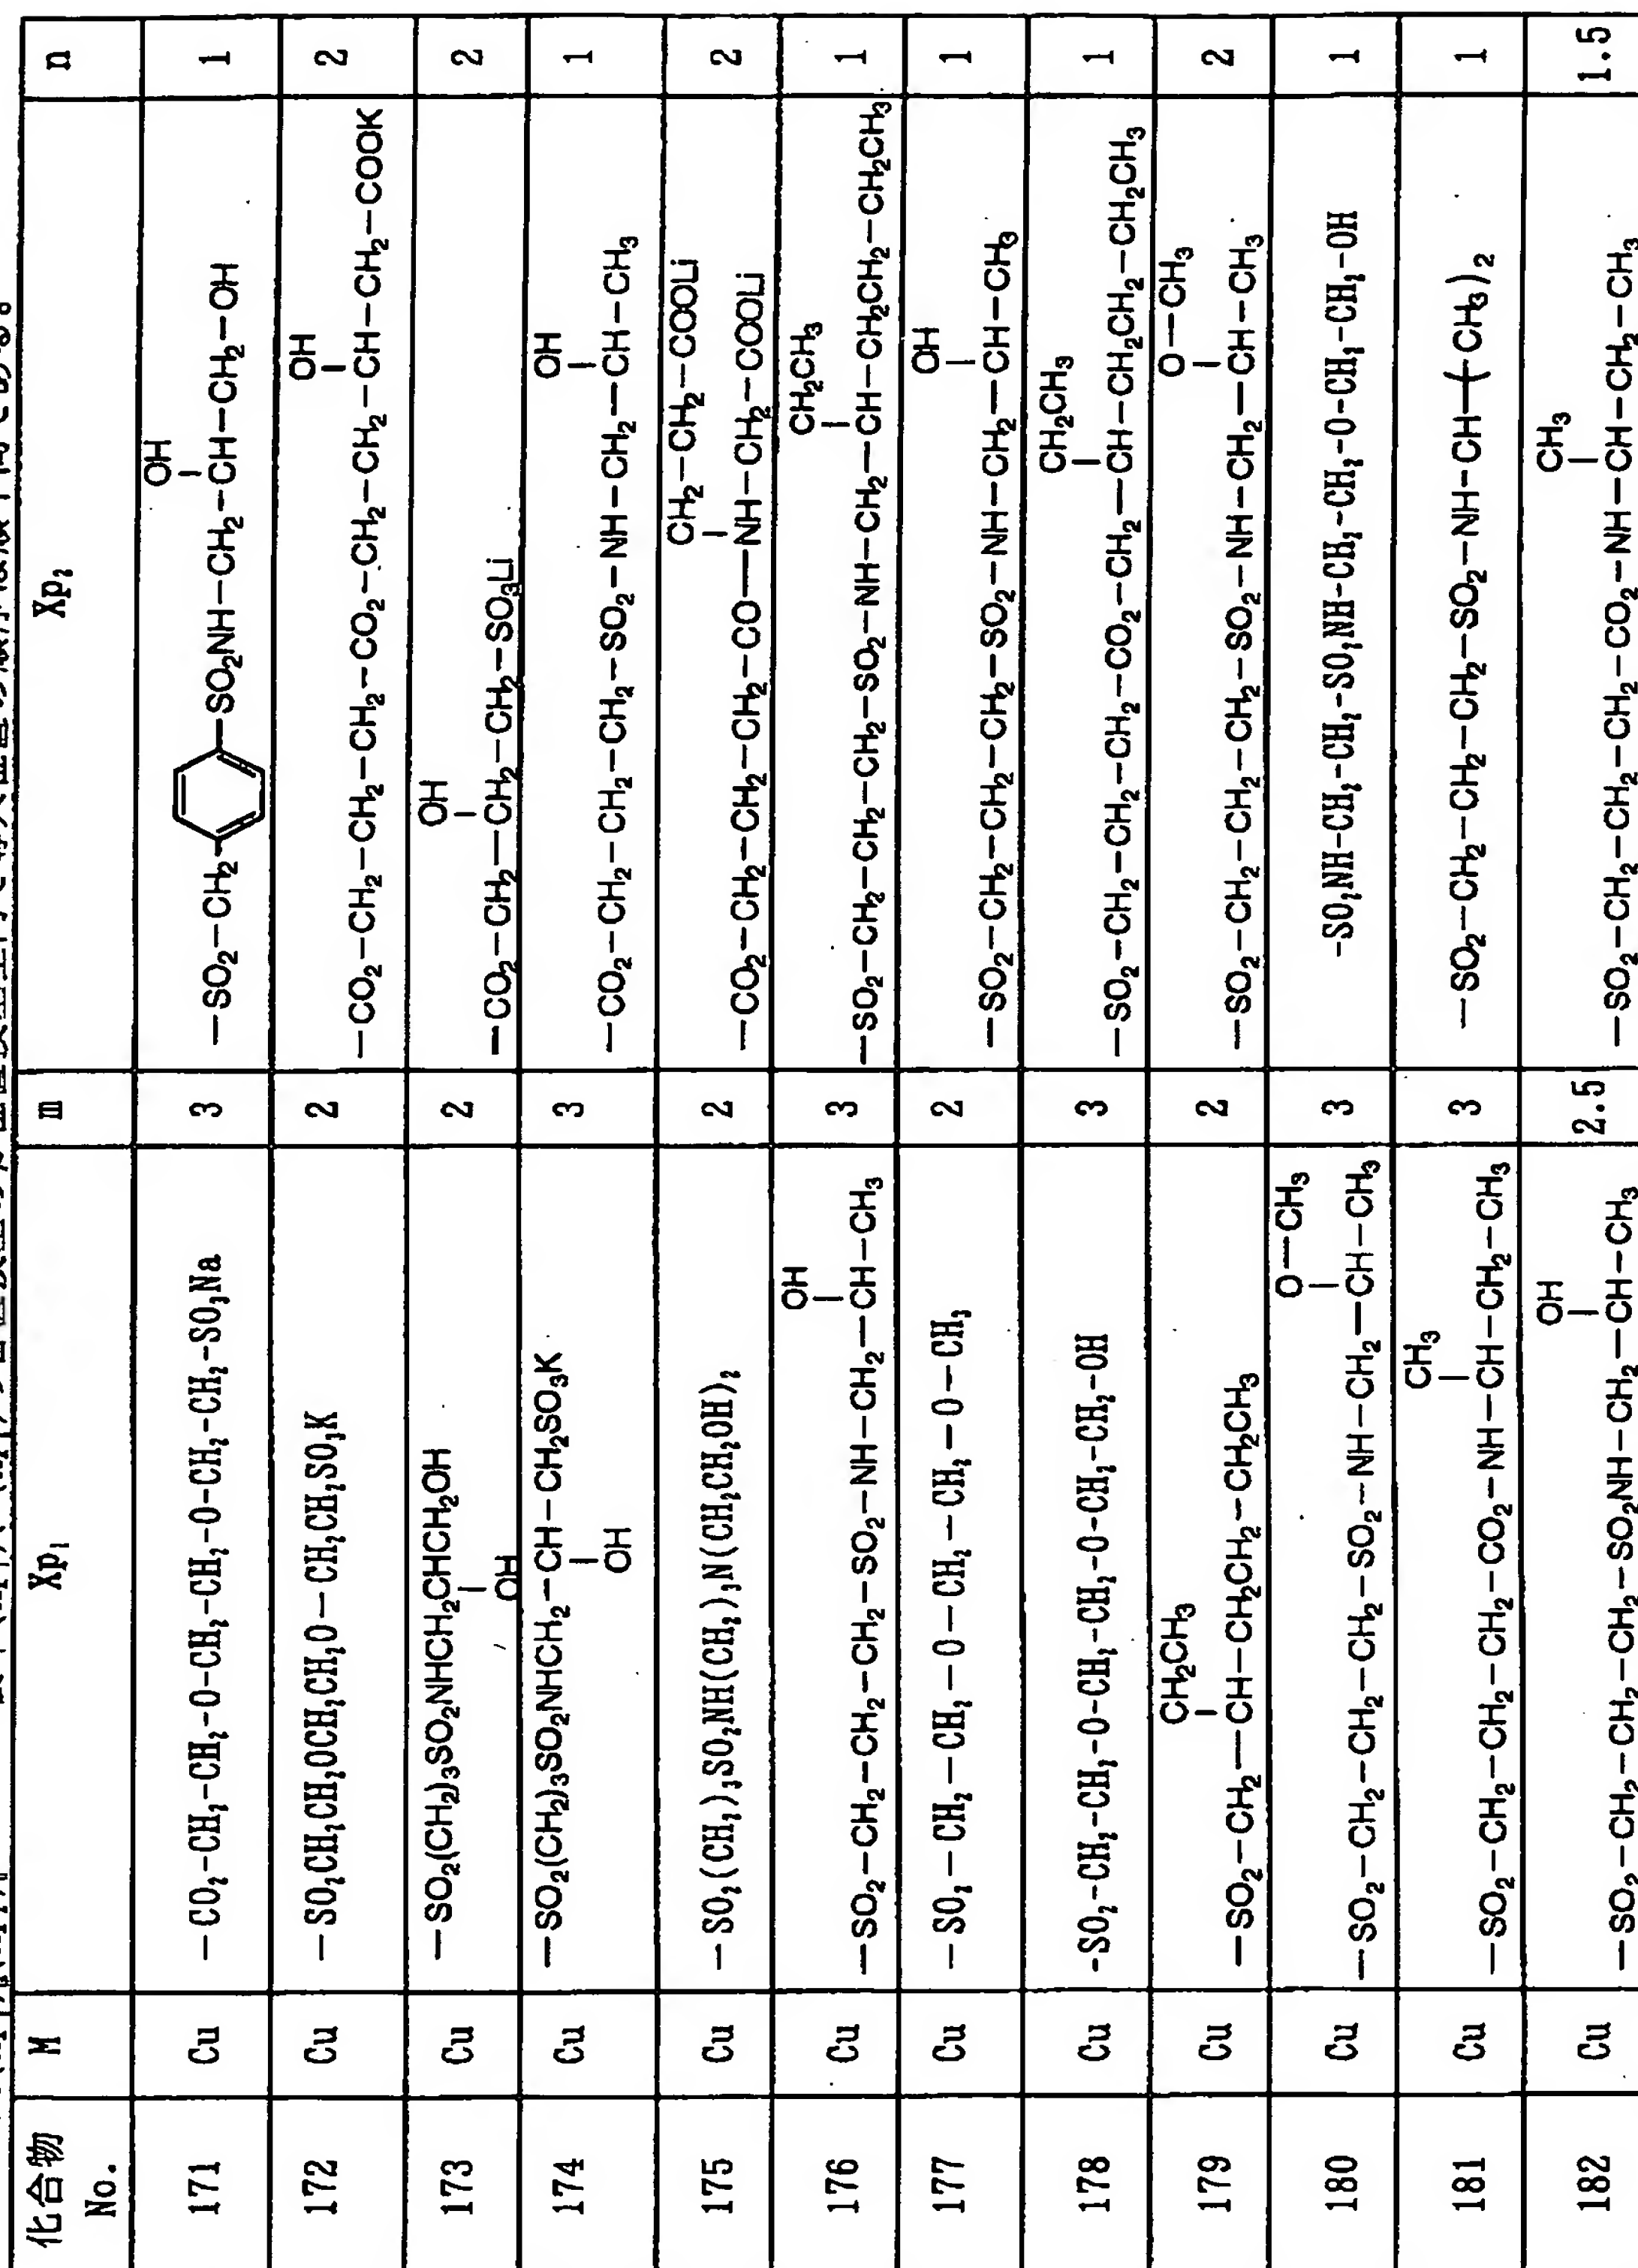 化合物 No. M Xp₁ m Xp₂ n
171 Cu －CO₂-CH₂-CH₂-O-CH₂-CH₂-O-CH₂-CH₂-SO₃Na 3 —SO₂−CH₂−[benzene ring]−SO₂NH−CH₂−CH(OH)−CH₂−OH 1
172 Cu －SO₂CH₂CH₂OCH₂CH₂O－CH₂CH₂SO₃K 2 —CO₂−CH₂−CH₂−CH₂−CO₂−CH₂−CH₂−CH(OH)−CH₂−COOK 2
173 Cu —SO₂(CH₂)₃SO₂NHCH₂CH(OH)CH₂OH 2 —CO₂−CH₂−CH(OH)−CH₂−SO₃Li 2
174 Cu —SO₂(CH₂)₃SO₂NHCH₂−CH(OH)−CH₂SO₃K 3 —CO₂−CH₂−CH₂−CH₂−SO₂−NH−CH₂−CH(OH)−CH₃ 1
175 Cu －SO₂(CH₂)₃SO₂NH(CH₂)₃N(CH₂CH₂OH)₂ 2 —CO₂−CH₂−CH₂−CH₂−CO—NH(CH₂−CH₂−COOLi)−CH₂−COOLi 2
176 Cu —SO₂−CH₂−CH₂−CH₂−SO₂−NH−CH₂−CH(OH)−CH₃ 3 —SO₂−CH₂−CH₂−CH₂−SO₂−NH−CH₂−CH(CH₂CH₃)−CH₂CH₂−CH₂CH₃ 1
177 Cu －SO₂－CH₂－CH₂－O－CH₂－CH₂－O－CH₃ 2 —SO₂−CH₂−CH₂−CH₂−SO₂−NH−CH₂−CH(OH)−CH₃ 1
178 Cu -SO₂-CH₂-CH₂-O-CH₂-CH₂-O-CH₂-CH₂-OH 3 —SO₂−CH₂−CH₂−CH₂−CO₂−CH₂−CH(CH₂CH₃)−CH₂CH₂−CH₂CH₃ 1
179 Cu —SO₂−CH₂−CH(CH₂CH₃)−CH₂CH₂−CH₂CH₃ 2 —SO₂−CH₂−CH₂−CH₂−SO₂−NH−CH₂−CH(O−CH₃)−CH₃ 2
180 Cu —SO₂−CH₂−CH₂−CH₂−SO₂−NH−CH₂−CH(O−CH₃)−CH₃ 3 -SO₂NH-CH₂-CH₂-SO₂NH-CH₂-CH₂-O-CH₂-CH₂-OH 1
181 Cu —SO₂−CH₂−CH₂−CH₂−CO₂−NH−CH(CH₃)−CH₂−CH₃ 3 —SO₂−CH₂−CH₂−CH₂−SO₂−NH−CH−(CH₃)₂ 1
182 Cu —SO₂−CH₂−CH₂−CH₂−SO₂NH−CH₂−CH(OH)−CH₃ 2.5 —SO₂−CH₂−CH₂−CH₂−CO₂−NH−CH(CH₃)−CH₂−CH₃ 1.5